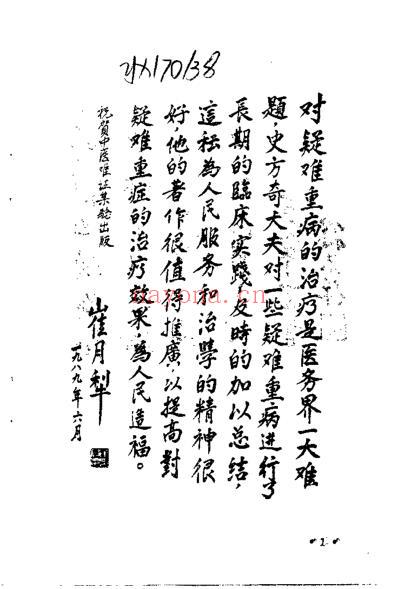 对疑难重病的治疗是医务界一大难
题,史方奇大夫对一些疑难重病进行了
長期的臨床实踐,及時的加以总结,
這种為人民服务和治學的精神很
好,他的著作很值得推廣,以提高对
疑难重症的治疗效果,為人民造福。
祝賀中医难证集驗出版
崔月犁
一九八九年六月
·2·